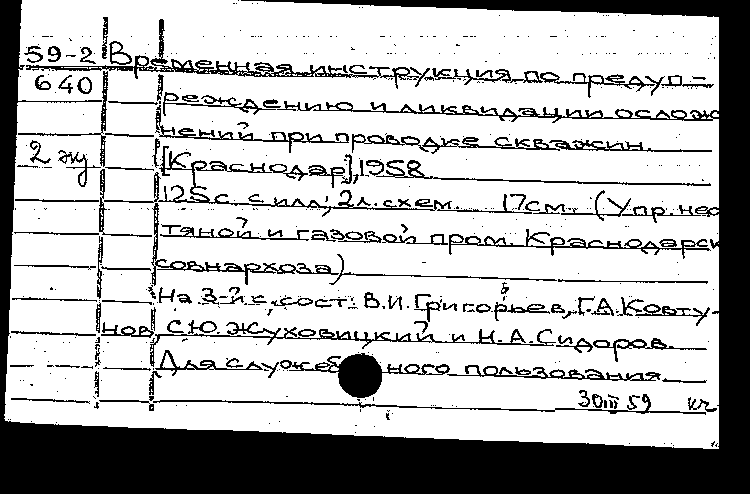 59-2 Временная инструкция по предуп-
640
реждению и ликвидации ослож
нений при проводке скважин.
2 жу [Краснодар], 1958
125с. с илл; 2л. схем. 17см. (Упр. неф
тяной и газовой пром. Краснодарск
совнархоза)
На 3-й с. сост: В.И. Григорьев, Г.А. Ковту-
нов, С.Ю. Жуховицкий и Н.А. Сидоров.
Для служебного пользования.
30 III 59 кг